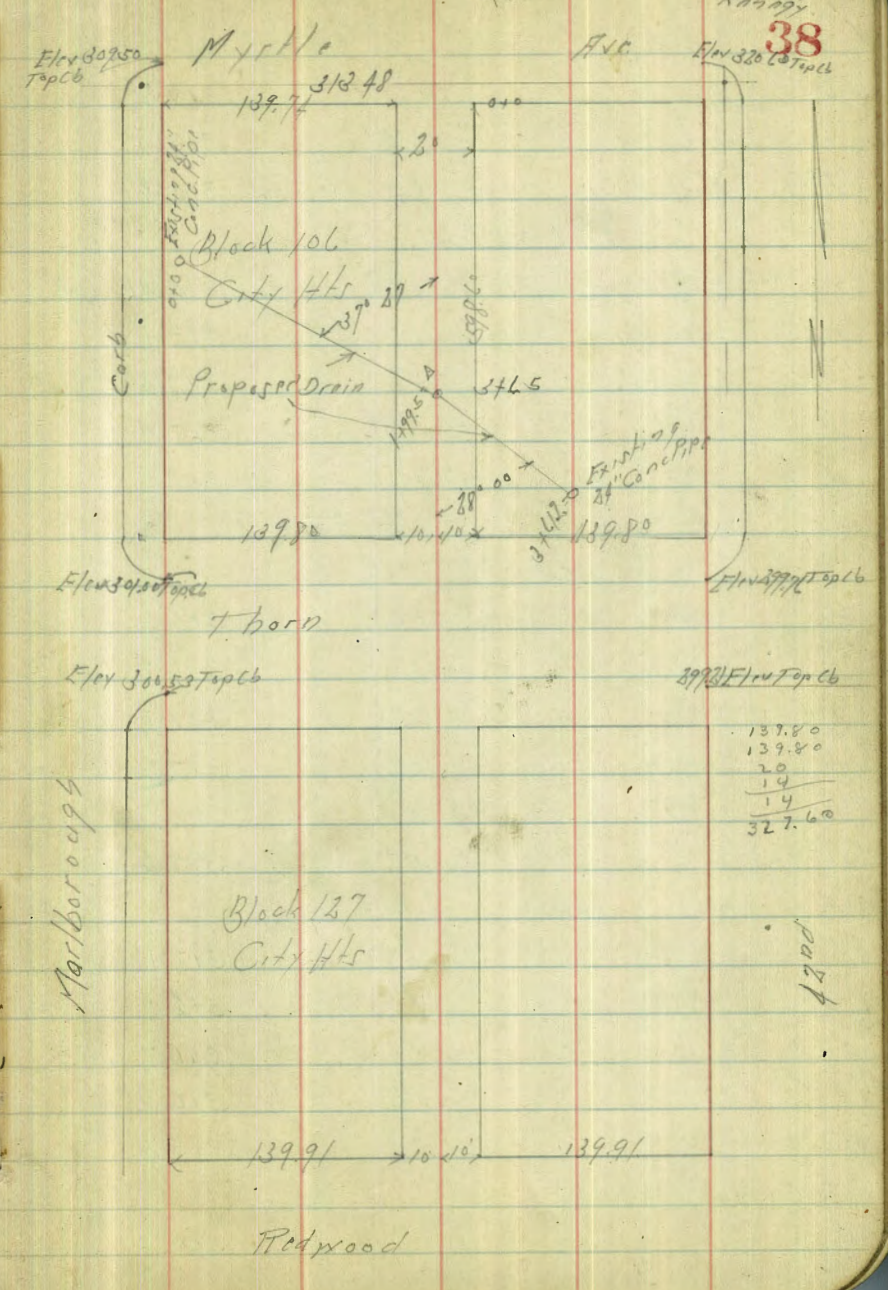 38
Myrtle Ave
Elev 309.50
Top Cb
Top Cb
313.48
139.71
0+0
20
Existing 24"
Conc Pipe
0+0
Block 106
City Hts
37° 27
Curb
Proposed Drain
1+99.5
3+65
Existing
24" Conc Pipe
28° 00
139.80
10 10
139.80
Elev 301.00 Top Cb
Top Cb
Thorn
Elev 300.53 Top Cb
Elev Top Cb
139.80
139.80
20
14
14
327.60
Marlborough
Block 127
City Hts
42nd
139.91
10 10
139.91
Redwood